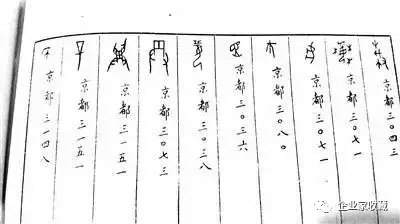 京都三〇四三
京都三〇七一
京都三〇七一
京都三〇八〇
京都三〇三六
京都三〇三八
京都三〇七三
京都三一五一
京都三一五一
京都三一四八
企业家收藏